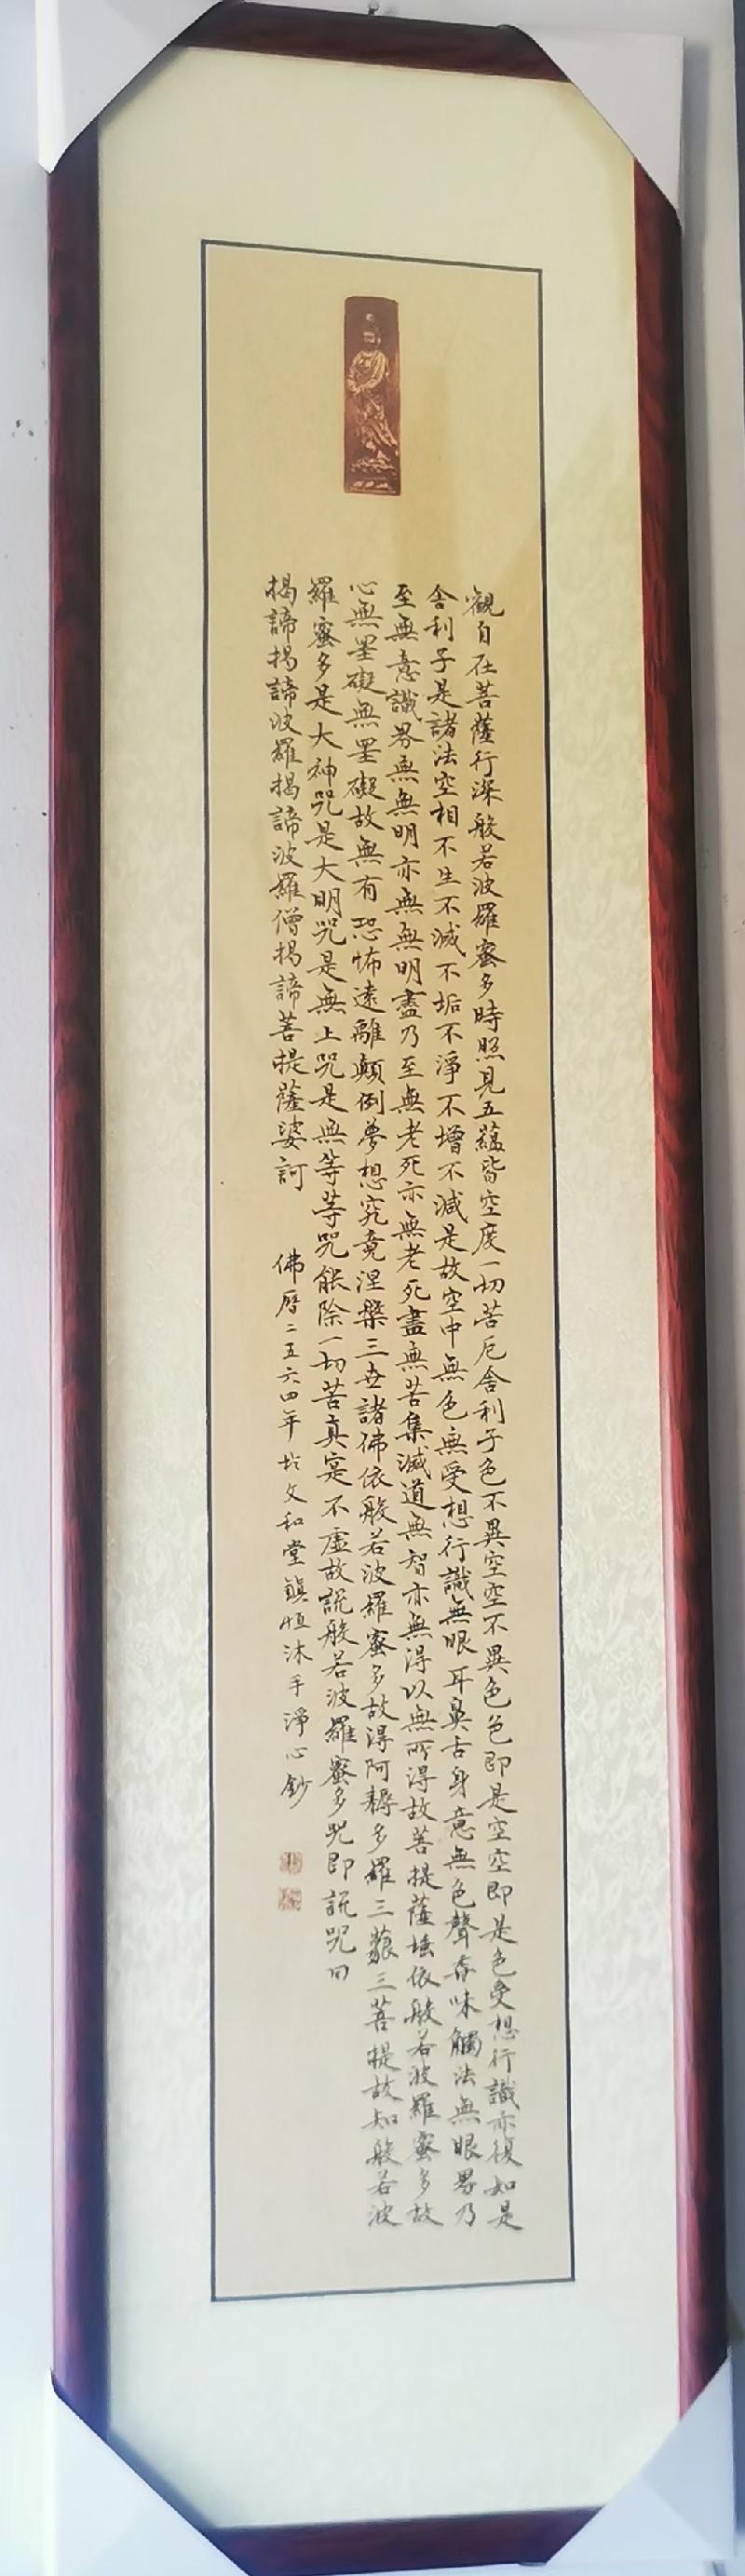 觀自在菩薩行深般若波羅蜜多時照見五蘊皆空度一切苦厄舍利子色不異空空不異色色即是空空即是色受想行識亦復如是
舍利子是諸法空相不生不滅不垢不淨不增不減是故空中無色無受想行識無眼耳鼻舌身意無色聲香味觸法無眼界乃
至無意識界無無明亦無無明盡乃至無老死亦無老死盡無苦集滅道無智亦無得以無所得故菩提薩埵依般若波羅蜜多故
心無罣礙無罣礙故無有恐怖遠離顛倒夢想究竟涅槃三世諸佛依般若波羅蜜多故得阿耨多羅三藐三菩提故知般若波
羅蜜多是大神咒是大明咒是無上咒是無等等咒能除一切苦真寔不虛故說般若波羅蜜多咒即說咒曰
揭諦揭諦波羅揭諦波羅僧揭諦菩提薩婆訶
佛曆二五六四年於文和堂鎮恒沐手淨心鈔